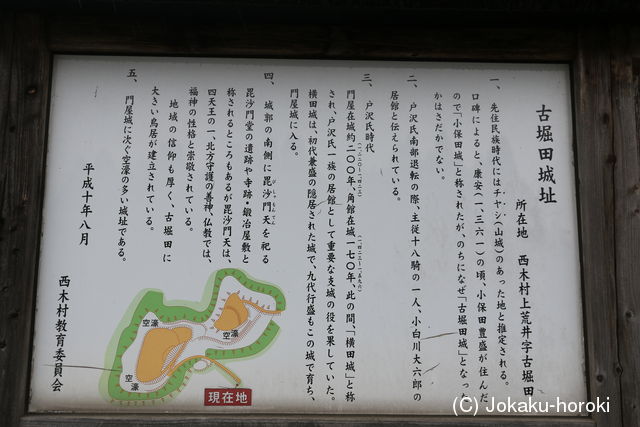 古堀田城址
所在地　西木村上荒井字古堀田
一、先住民族時代にはチャシ(山城)のあった地と推定される。
口碑によると、康安(一、三六一)の頃、小保田豊盛が住んだ
ので「小保田城」と称されたが、のちになぜ「古堀田城」となっ
たかはさだかでない。
二、戸沢氏南部退転の際、主従十八騎の一人、小白川大六郎の
居館と伝えられている。
三、戸沢氏時代
門屋在城約二〇〇年、角館在城一七〇年、此の間、「横田城」と称
され、戸沢氏一族の居館として重要な支城の役を果していた。
横田城は、初代兼盛の隠居された城で、九代行盛もこの城で育ち、
門屋城に入る。
四、城郭の南側に毘沙門天を祀る
びしゃもんてん
毘沙門堂の遺跡や寺跡・鍛冶屋敷と
称されるところもあるが毘沙門天は、
四天王の一、北方守護の善神、仏教では、
福神の性格と崇敬されている。
地域の信仰も厚く、古堀田に
大きい鳥居が建立されている。
五、門屋城に次ぐ空濠の多い城址である。
平成十年八月
西木村教育委員会
空濠
空濠
空濠
現在地
(C) Jokaku-horoki